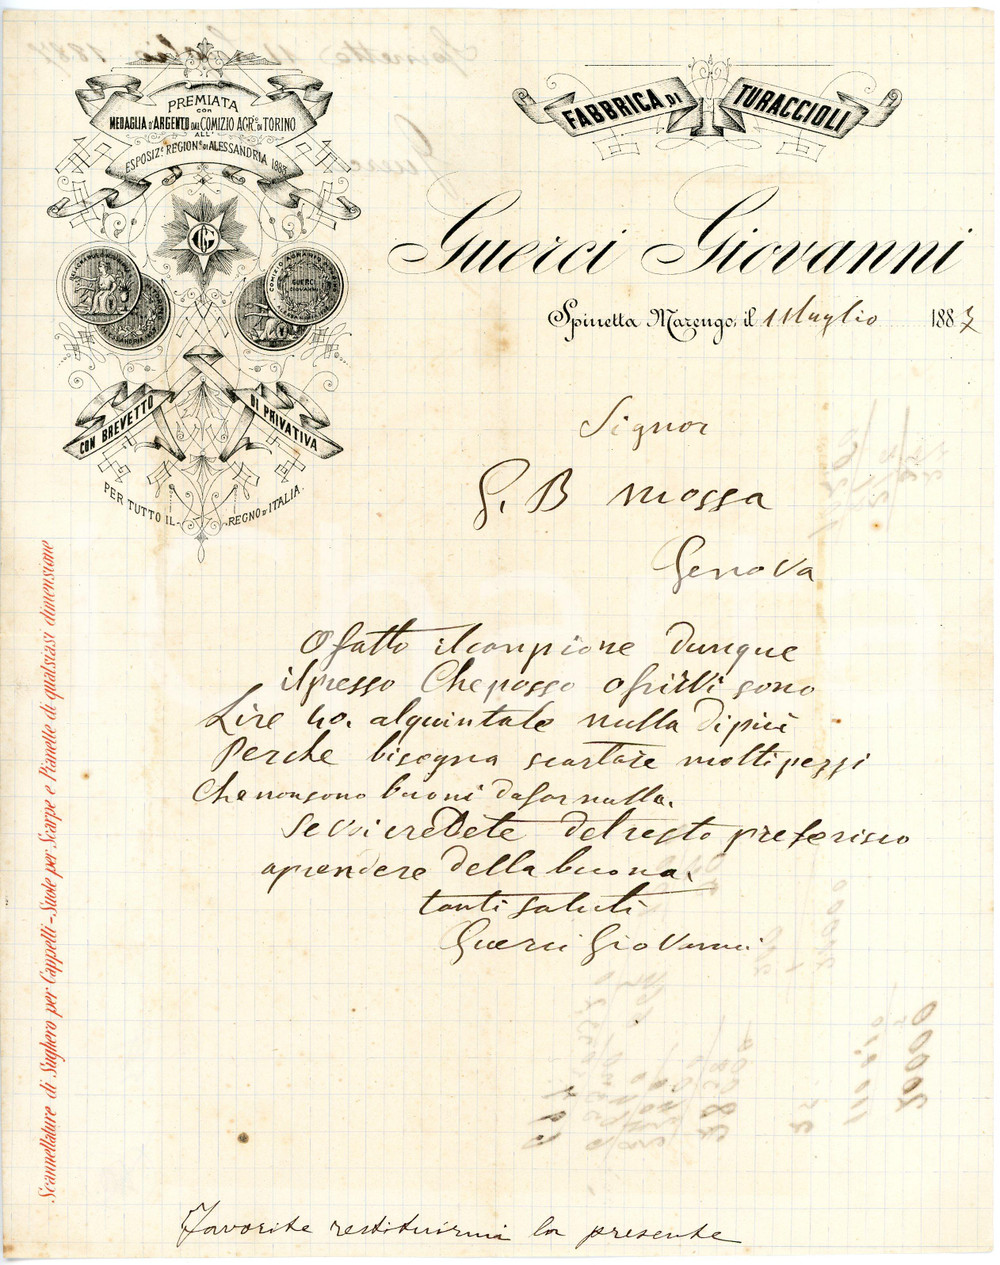 PREMIATA
con
MEDAGLIA D'ARGENTO DAL COMIZIO AGR.º DI TORINO
ALL'
ESPOSIZ.e REGION.e DI ALESSANDRIA 1883
CON BREVETTO DI PRIVATIVA
PER TUTTO IL REGNO D'ITALIA
FABBRICA DI TURACCIOLI
Guerci Giovanni
Spinetta Marengo, il 11 Luglio 1887
Signor
G. B Mossa
Genova
O fatto il canpione dunque
il presso Che posso ofrirvi sono
Lire 40. al quintale nulla di piu
Perche bisogna scartare molti pezzi
Che non sono buoni da far nulla.
Se voi credete del resto preferisco
a prendere della buona.
tanti saluti
Guerci Giovanni
Favorite restituirmi la presente
Scannellature di Sughero per Cappelli - Suole per Scarpe e Pianelle di qualsiasi dimensione